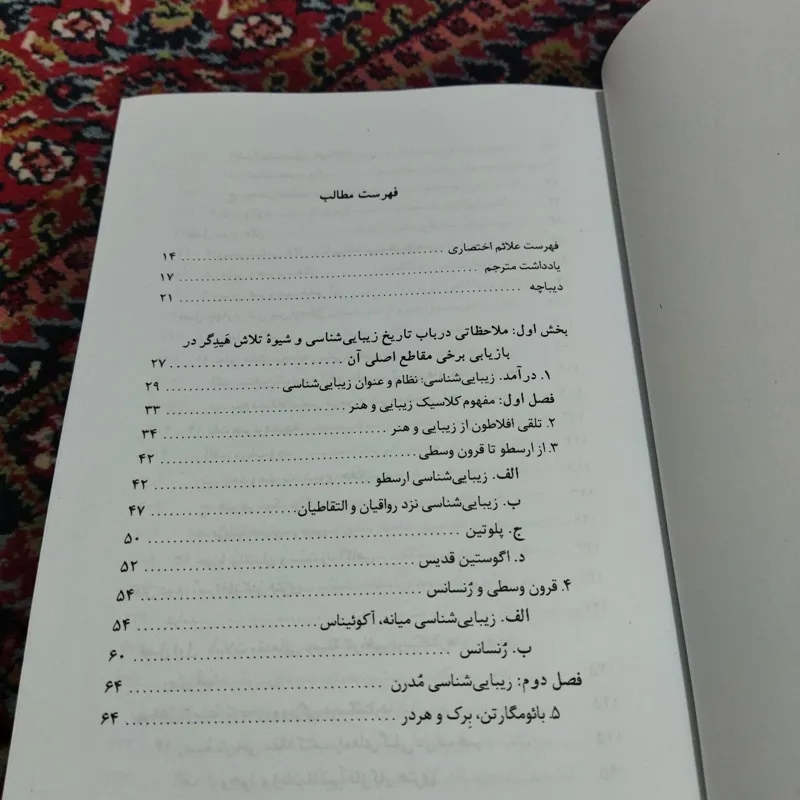 فهرست مطالب
فهرست علائم اختصاری ۱۴
یادداشت مترجم ۱۷
دیباچه ۲۱
بخش اول: ملاحظاتی درباب تاریخ زیبایی‌شناسی و شیوۀ تلاش هَیدِگر در
بازیابی برخی مقاطع اصلی آن ۲۷
۱. درآمد. زیبایی‌شناسی: نظام و عنوان زیبایی‌شناسی ۲۹
فصل اول: مفهوم کلاسیک زیبایی و هنر ۳۳
۲. تلقی افلاطون از زیبایی و هنر ۳۴
۳. از ارسطو تا قرون وسطی ۴۲
الف. زیبایی‌شناسی ارسطو ۴۲
ب. زیبایی‌شناسی نزد رواقیان و التقاطیان ۴۷
ج. پلوتین ۵۰
د. اگوستین قدیس ۵۲
۴. قرون وسطی و رُنسانس ۵۴
الف. زیبایی‌شناسی میانه، آکوئیناس ۵۴
ب. رُنسانس ۶۰
فصل دوم: ریبایی‌شناسی مُدرن ۶۴
۵. بائومگارتن، بِرک و هردر ۶۴